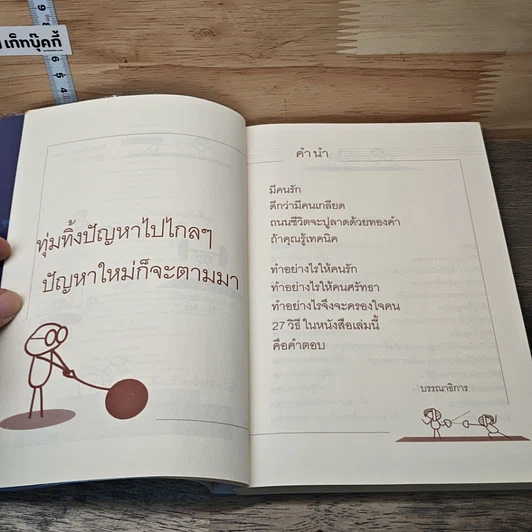 เก็ทบุ๊คกี้
9
6
5
4
ทุ่มทิ้งปัญหาไปไกลๆ
ปัญหาใหม่ก็จะตามมา
คำนำ
มีคนรัก
ดีกว่ามีคนเกลียด
ถนนชีวิตจะปูลาดด้วยทองคำ
ถ้าคุณรู้เทคนิค
ทำอย่างไรให้คนรัก
ทำอย่างไรให้คนศรัทธา
ทำอย่างไรจึงจะครองใจคน
27 วิธี ในหนังสือเล่มนี้
คือคำตอบ
บรรณาธิการ